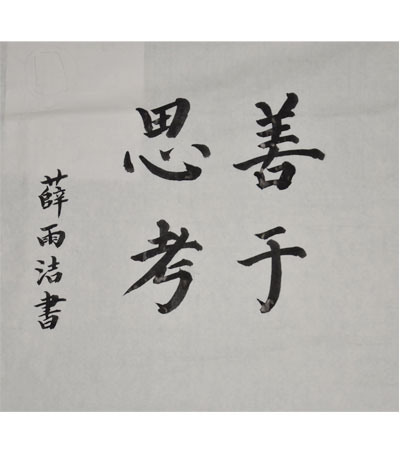 善于
思考
薛雨洁書